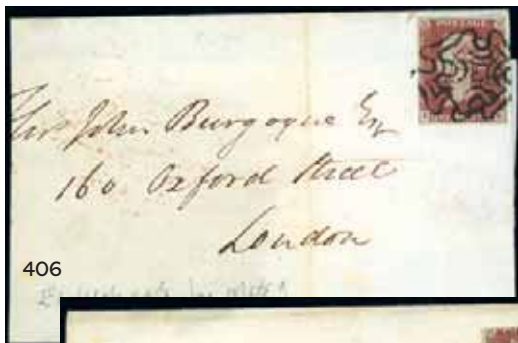 POSTAGE
John Burgoyne Esq
160 Oxford Street
London
406